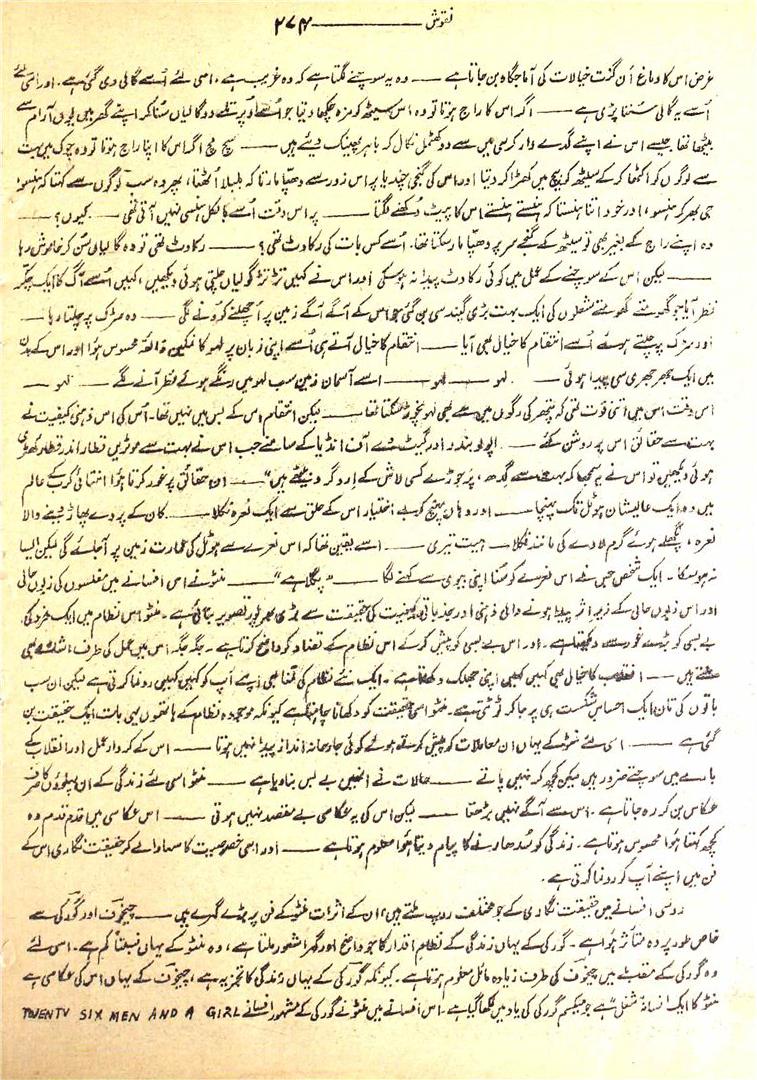 نقوش ——— ۲۷۴
غرض اس کا دماغ اُن گنت خیالات کی آماجگاہ بن جاتا ہے —— وہ یہ سوچنے لگتا ہے کہ وہ غریب ہے، اسی لئے اُسے گالی دی گئی ہے۔ اور اسی لئے
اُسے یہ گالی سننا پڑی ہے —— اگر اس کا راج ہوتا تو وہ اس سیٹھ کو مزہ چکھا دیتا جو اُسے اوپر تلے دو گالیاں سُنا کر اپنے گھر میں یوں آرام سے
بیٹھا تھا جیسے اس نے اپنے گدے دار کرسی میں سے دو کھٹمل نکال کر باہر پھینک دیئے ہیں —— سچ مچ اگر اس کا اپنا راج ہوتا تو وہ چوک میں بہت
سے لوگوں کو اکٹھا کر کے سیٹھ کو بیچ میں کھڑا کر دیتا اور اس کی گنجی چندیا پر اس زور سے دھپّا مارتا کہ بلبلا اُٹھتا، پھر وہ سب لوگوں سے کہتا کہ ہنسو،
جی بھر کر ہنسو، اور خود اتنا ہنستا کہ ہنستے ہنستے اس کا پیٹ دُکھنے لگتا —— پر اس وقت اُسے بالکل ہنسی نہیں آتی تھی —— کیوں؟ ——
وہ اپنے راج کے بغیر بھی تو سیٹھ کے گنجے سر پر دھپّا مار سکتا تھا۔ اُسے کس بات کی رکاوٹ تھی؟ —— رکاوٹ تھی تو وہ گالیاں سُن کر خاموش رہا
—— لیکن اس کے سوچنے کے عمل میں کوئی رکاوٹ پیدا نہ ہو سکی اور اس نے کہیں تڑ تڑ گولیاں چلتی ہوئی دیکھیں، کہیں اُسے آگ کا ایک چکّر
نظر آیا جو گھومتے گھومتے شعلوں کی ایک بہت بڑی گیند سی بن گئی جو اس کے آگے آگے زمین پر اُچھلنے کودنے لگی —— وہ سڑک پر چلتا رہا ——
اور سڑک پر چلتے ہوئے اُسے انتقام کا خیال بھی آیا —— انتقام کا خیال آتے ہی اُسے اپنی زبان پر لہو کا نمکین ذائقہ محسوس ہوا اور اس کے بدن
میں ایک جھرجھری سی پیدا ہوئی —— لہو —— لہو —— اسے آسمان زمین سب لہو میں رنگے ہوئے نظر آنے لگے —— لہو ——
اس وقت اس میں اتنی قوت تھی کہ پتھر کی رگوں میں سے بھی لہو نچوڑ سکتا تھا —— لیکن انتقام اس کے بس میں نہیں تھا۔ اُس کی اس ذہنی کیفیت نے
بہت سے حقائق اس پر روشن کئے —— اپولو بندر اور گیٹ وے آف انڈیا کے سامنے جب اس نے بہت سے موٹریں قطار اندر قطار کھڑی
ہوئی دیکھیں تو اس نے یہ سمجھا کہ بہت سے گِدھ، پر جوڑے کسی لاش کے اِرد گرد بیٹھے ہیں“ —— ان حقائق پر غور کرتا ہوا انتہائی کرب کے عالم
میں وہ ایک عالیشان ہوٹل تک پہنچا —— اور وہاں پہنچ کر بے اختیار اس کے حلق سے ایک نعرہ نکلا —— کان کے پردے پھاڑ دینے والا
نعرہ، پگھلے ہوئے گرم لاوے کی مانند نکلا۔ ہت تیری —— اسے یقین تھا کہ اس نعرے سے ہوٹل کی عمارت زمین پر آ جائے گی لیکن ایسا
نہ ہو سکا۔ ایک شخص جس نے اس نعرے کو سُنا اپنی بیوی سے کہنے لگا —— ”پگلا ہے“ —— منٹو نے اس افسانے میں مفلسوں کی زبوں حالی
اور اس زبوں حالی کے زیرِ اثر پیدا ہونے والی ذہنی اور جذباتی کیفیت کی حقیقت سے بڑی بھرپور تصویر بنائی ہے۔ منٹو اس نظام میں ایک فرد کی
بے بسی کو بڑے غور سے دیکھتا ہے۔ اور اس بے بسی کو پیش کر کے اس نظام کے تضاد کو واضح کرتا ہے۔ جگہ جگہ اس میں عمل کی طرف اشارے بھی
ملتے ہیں —— انقلاب کا خیال بھی کہیں کہیں اپنی جھلک دکھاتا ہے۔ ایک نئے نظام کی تمنا بھی اپنے آپ کو کہیں کہیں رونما کرتی ہے لیکن ان سب
باتوں کی تان ایک احساسِ شکست ہی پر جا کر ٹوٹتی ہے۔ منٹو اسی حقیقت کو دکھانا چاہتا ہے کیونکہ موجودہ نظام کے ہاتھوں یہی بات ایک حقیقت بن
گئی ہے —— اسی لئے منٹو کے یہاں ان معاملات کو پیش کرتے ہوئے کوئی جارحانہ انداز پیدا نہیں ہوتا —— اس کے کردار عمل اور انقلاب کے
بارے میں سوچتے ضرور ہیں لیکن کچھ کر نہیں پاتے —— حالات نے انھیں بے بس بنا دیا ہے —— منٹو اسی لئے زندگی کے ان پہلوؤں کا صرف
عکاس بن کر رہ جاتا ہے۔ اس سے آگے نہیں بڑھتا —— لیکن اس کی یہ عکاسی بے مقصد نہیں ہوتی —— اس عکاسی میں قدم قدم وہ
کچھ کہتا ہوا محسوس ہوتا ہے۔ زندگی کو سُدھارنے کا پیام دیتا ہوا معلوم ہوتا ہے —— اور اسی خصوصیت کا سہارا لے کر حقیقت نگاری اس کے
فن میں اپنے آپ کو رونما کرتی ہے۔
روسی افسانے میں حقیقت نگاری کے جو مختلف روپ ملتے ہیں، ان کے اثرات منٹو کے فن پر بڑے گہرے ہیں —— چیخوف اور گورکی سے
خاص طور پر وہ متاثر ہوا ہے۔ گورکی کے یہاں زندگی کے نظامِ اقدار کا جو واضح اور گہرا شعور ملتا ہے، وہ منٹو کے یہاں نسبتاً کم ہے۔ اسی لئے
وہ گورکی کے مقابلے میں چیخوف کی طرف زیادہ مائل معلوم ہوتا ہے۔ کیونکہ گورکی کے یہاں زندگی کا تجزیہ ہے، چیخوف کے یہاں اس کی عکاسی ہے
منٹو کا ایک افسانہ ”شغل“ ہے جو میکسم گورکی کی یاد میں لکھا گیا ہے۔ اس افسانے میں منٹو نے گورکی کے مشہور افسانے TWENTY SIX MEN AND A GIRL